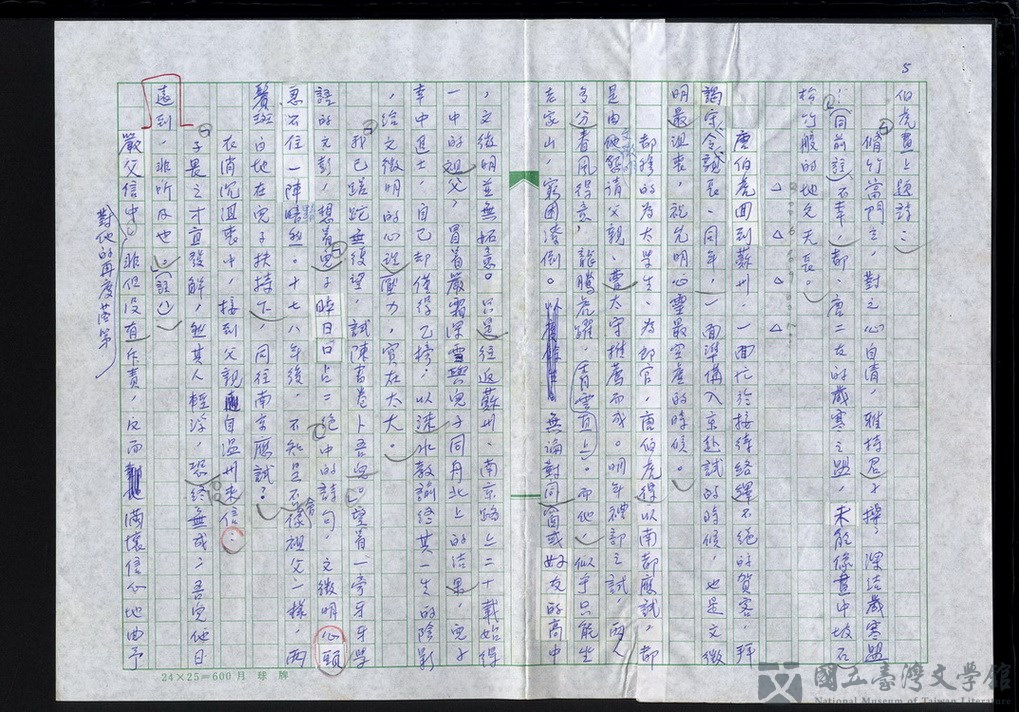 5
伯虎畫上題詩：
「脩竹當門立，對之心自清，雅持君子操，深結歲寒盟
」向前註：不幸，都、唐二友的歲寒之盟，未能像畫中坡石
松竹般的地久天長。
△ △ △ △
唐伯虎回到蘇州，一面忙於接待絡繹不絕的賀客，拜
謁守令試長、同年，一面準備入京赴試的時候，也是文徵
明最沮喪，視光明心靈最空虛的時候。
都穆的為太學生、為郎官，唐伯虎得以南都應試，都
是由他懇請父親、曹太守推薦而成。明年禮部之試，兩人
多分春風得意，龍騰虎躍，青雲直上。而他，似乎只能坐
老家山，窮困潦倒。無論對同窗或好友的高中
，文徵明並無妬意。只是往返蘇州、南京路上二十載始得
一中的祖父，冒著嚴霜深雪與兒子同舟北上的結果，兒子
幸中進士，自己卻僅得乙榜，以涑水教諭終其一生的陰影
，給文徵明的心理壓力，實在太大。
「卯已蹉跎無復望，試陳書卷卜吾兒。」望著一旁牙牙學
語的文彭，想著兒子晬日口占二絕中的詩句，文徵明心頭
忍不住一陣黯然。十七八年後，不知是不是會像祖父一樣，兩
鬢斑白地在兒子扶持下，同往南京應試？
衣消沉沮喪中，接到父親自溫州來信：
「子畏之才宜發解，然其人輕浮，恐終無成；吾兒他日
遠到，非所及也。」（註一）
嚴父信中，非但沒有斥責，反而滿懷信心地曲予
對他的再度落第
24×25=600 月球牌
國立臺灣文學館
National Museum of Taiwan Literature